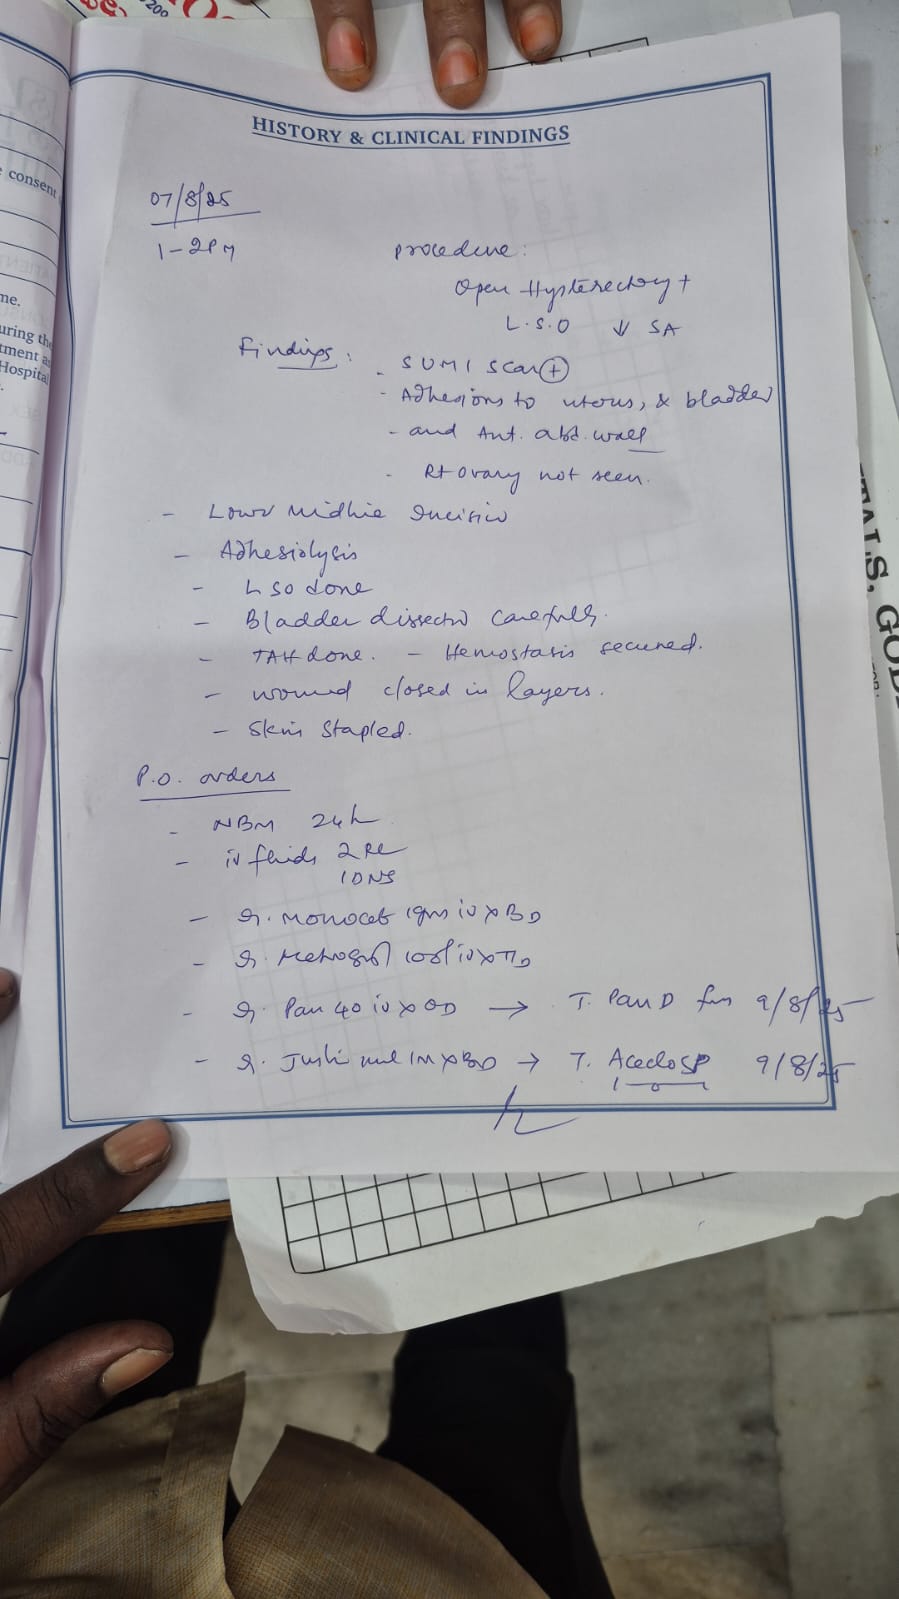 200
e consent
me.
uring the
tment as
Hospital
HISTORY & CLINICAL FINDINGS
07/8/25
1-2PM
procedure:
Open Hysterectomy +
L.S.O ↓ SA
Findings:
- SUMI scar (+)
- Adhesions to uterus, & bladder
- and Ant. abd. wall
- Rt ovary not seen.
- Lower midline Incision
- Adhesiolysis
- LSO done
- Bladder dissected carefully.
- TAH done. - Hemostasis secured.
- wound closed in layers.
- Skin Stapled.
P.O. orders
- NBM 24h
- iv fluids 2 RL
1 DNS
- Inj. Monocef 1gm iv x BD
- Inj. Metrogyl iv x TID
- Inj. Pan 40 iv x OD → T. Pan D from 9/8/25
- Inj. IM x BD → T. Aceclo SP 9/8/25
1-0-1
TALS, GOD